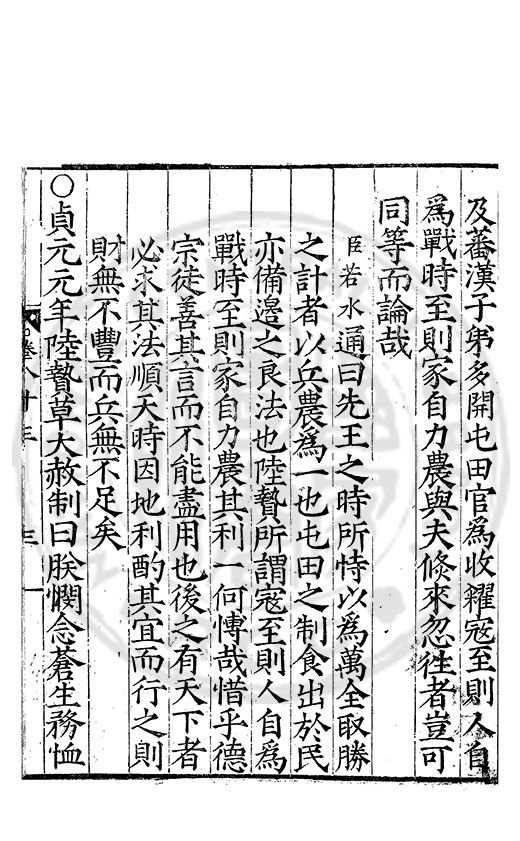 及蕃漢子弟多開屯田官爲收糴寇至則人自
爲戰時至則家自力農與夫倐來忽往者豈可
同等而論哉
臣若水通曰先王之時所恃以爲萬全取勝
之計者以兵農爲一也屯田之制食出於民
亦備邊之良法也陸贄所謂寇至則人自爲
戰時至則家自力農其利一何愽哉惜乎德
宗徒善其言而不能盡用也後之有天下者
必求其法順天時因地利酌其宜而行之則
財無不豐而兵無不足矣
○貞元元年陸贄草大赦制曰朕憫念蒼生務恤